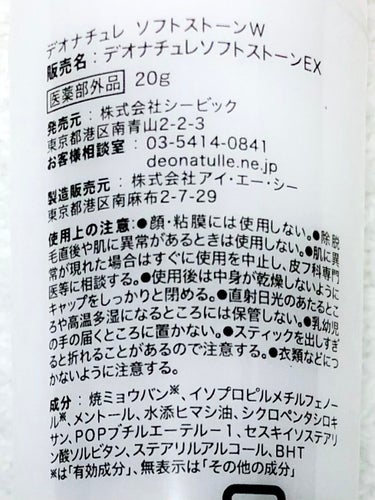 デオナチュレ ソフトストーンW
販売名：デオナチュレソフトストーンEX
医薬部外品 20g
発売元：株式会社シービック
東京都港区南青山2-2-3
お客様相談室：03-5414-0841
deonatulle.ne.jp
製造販売元：株式会社アイ・エー・シー
東京都港区南麻布2-7-29
使用上の注意：●顔・粘膜には使用しない。●除脱
毛直後や肌に異常があるときは使用しない。●肌に異
常が現れた場合はすぐに使用を中止し、皮フ科専門
医等に相談する。●使用後は中身が乾燥しないように
キャップをしっかりと閉める。●直射日光のあたるとこ
ろや高温多湿になるところには保管しない。●乳幼児
の手の届くところに置かない。●スティックを出しすぎ
ると折れることがあるので注意する。●衣類などにつ
かないように注意する。
成分：焼ミョウバン※、イソプロピルメチルフェノー
ル※、メントール、水添ヒマシ油、シクロペンタシロキ
サン、POPブチルエーテルー1、セスキイソステアリ
ン酸ソルビタン、ステアリルアルコール、BHT
※は「有効成分」、無表示は「その他の成分」